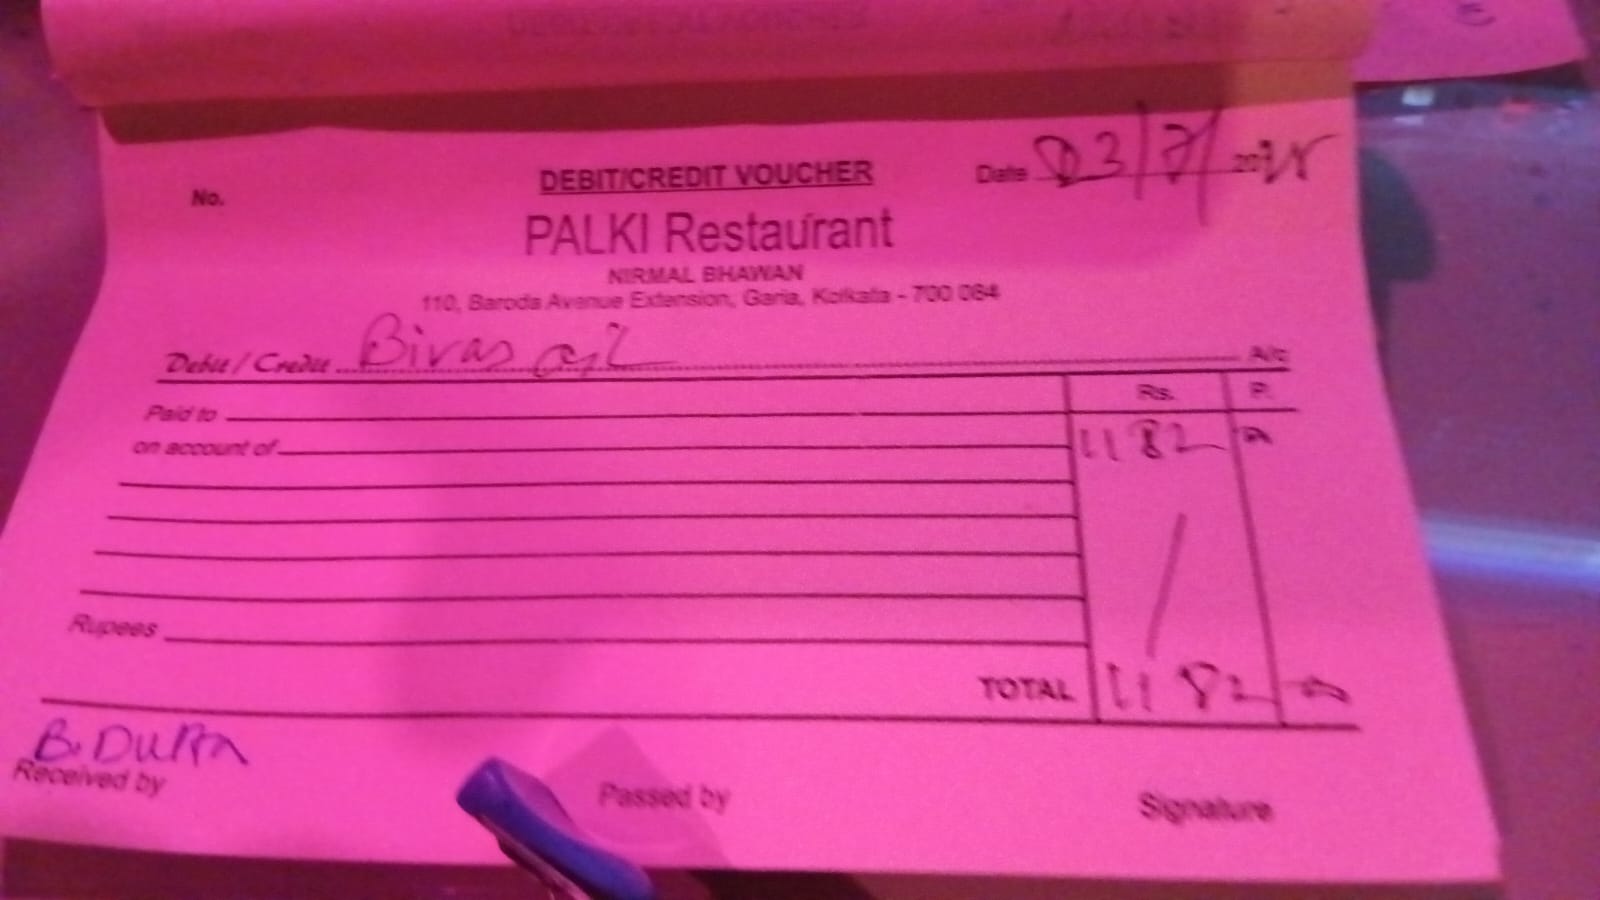 No.
DEBIT/CREDIT VOUCHER
Date 03/7/ 20
PALKI Restaurant
NIRMAL BHAWAN
110, Baroda Avenue Extension, Garia, Kolkata - 700 084
Debit / Credit Bivas A/c
Rs. P.
Paid to
on account of 1182
Rupees
TOTAL 1182
B. Dutta
Received by
Passed by
Signature